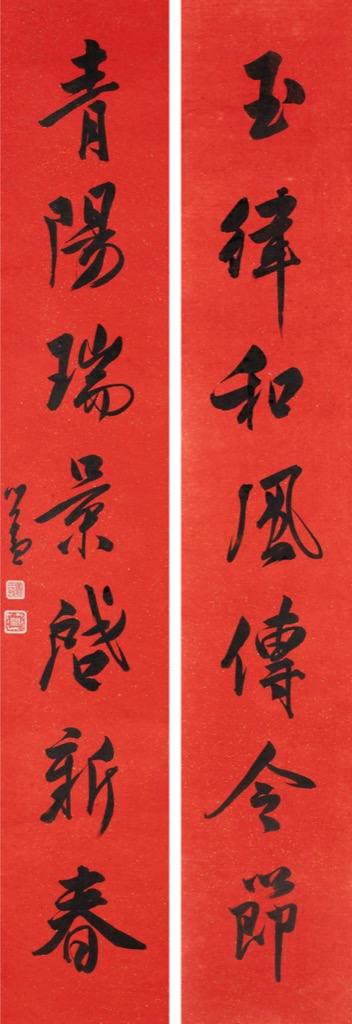 玉律和風傳令節
青陽瑞景啟新春
心畬